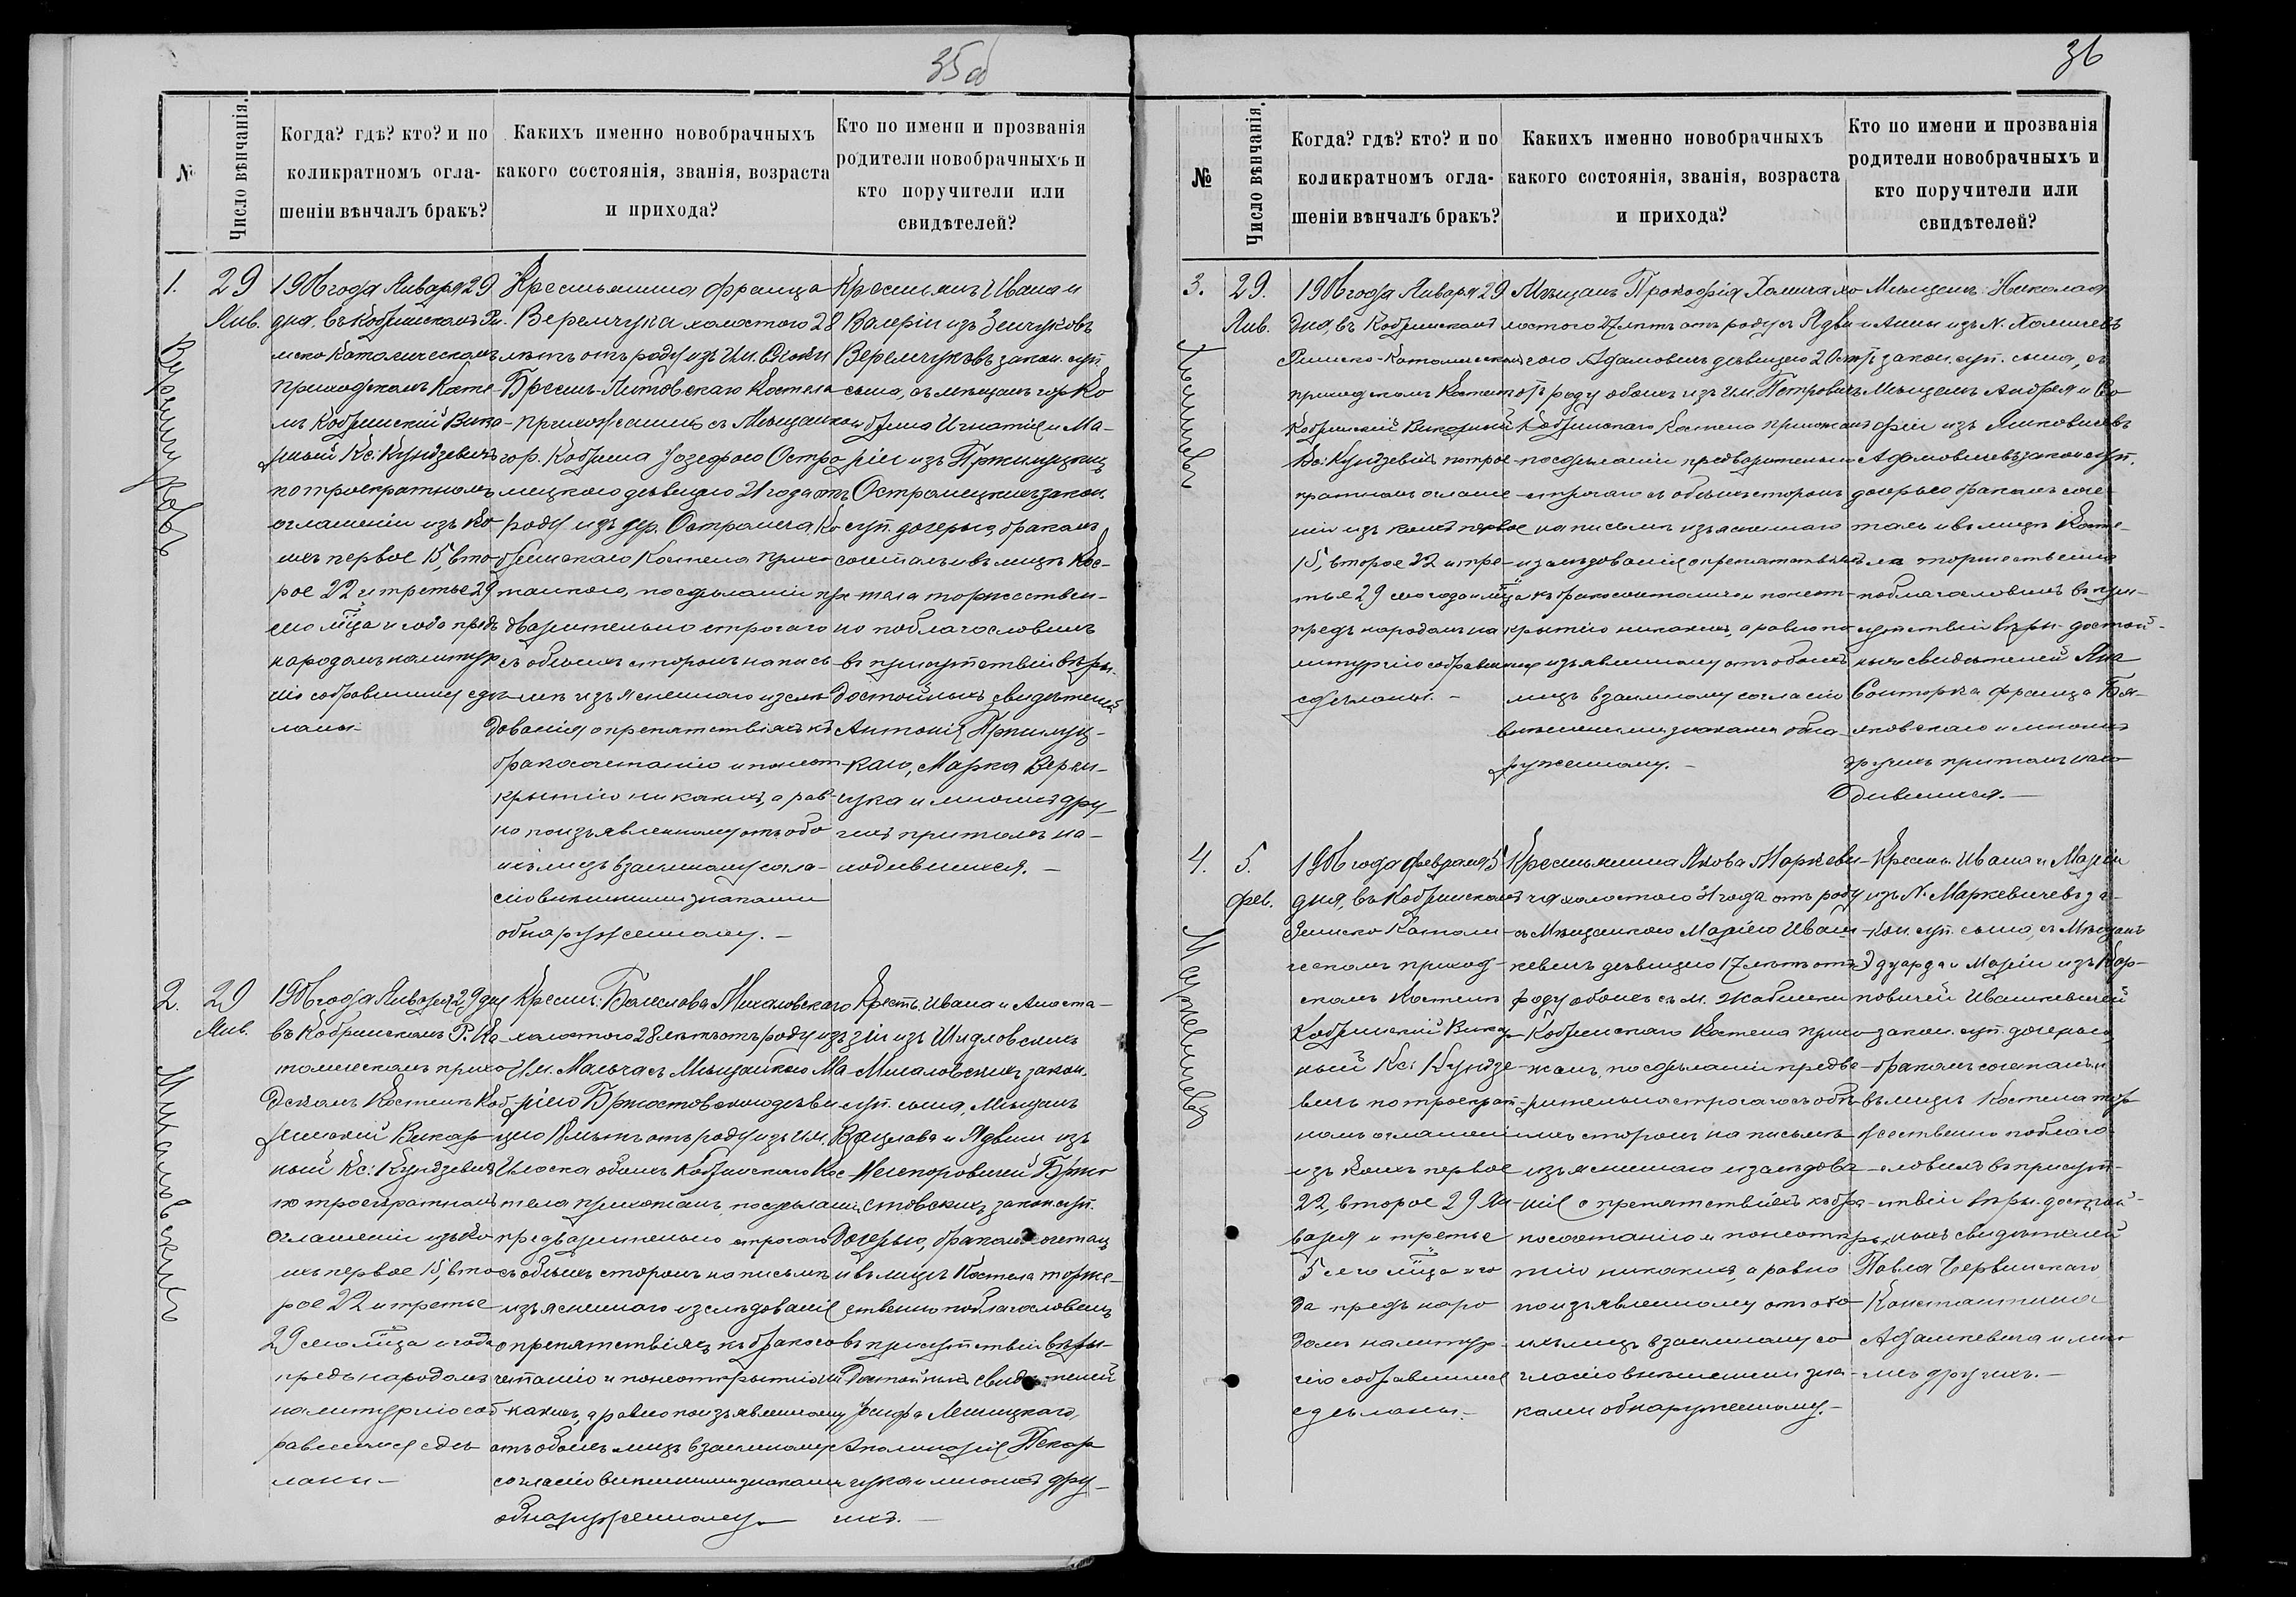 35об
№
Число вѣнчанія.
Когда? гдѣ? кто? и по
коликратномъ огла-
шеніи вѣнчалъ бракъ?
Какихъ именно новобрачныхъ
какого состоянія, званія, возраста
и прихода?
Кто по имени и прозванія
родители новобрачныхъ и
кто поручители или
свидѣтелей?
1.
29
Янв.
1906 года Января 29
дня, въ Кобринскомъ Ри-
мско Католическомъ
приходскомъ Косте-
лѣ Кобринскій Вика-
рный Кс. Кундзевичъ
по троекратномъ
оглашеніи изъ ко
ихъ первое 15, вто
рое 22 и третье 29
сего м-ца и года предъ
народомъ на литур
гію собравшимся сдѣ
ланы-
Крестьянина Франца
Веремчука холостого 28
лѣтъ отъ роду изъ им.
Брестъ-Литовскаго Костела
прихожанинъ съ Мѣщанкою
гор. Кобрина Іозефою Остро
мецкою дѣвицею 21 года отъ
роду изъ дер. Остромеча, Ко
бринскаго Костела прихо
жанкою, по сдѣланіи пре
дварительно строгаго
съ обоихъ сторонъ на пись
мѣ изъясненнаго изслѣ
дованія о препятствіяхъ къ
бракосочетанію и по неот-
крытію никакихъ, а рав-
но по изъявленному отъ обо
ихъ лицъ взаимному согла-
сію внѣшними знаками
обнаруженному. -
Крестьянъ Ивана и
Валеріи изъ Зенчуковъ
Веремчуковъ закон. суп.
сына, съ мѣщанъ гор. Ко
брина Игнатія и Ма-
ріи изъ Пржилуцкихъ
Остромецкихъ закон.
суп. дочерью, бракомъ
сочеталъ и въ лицѣ Кос-
тела торжествен-
но поблагословилъ
въ присутствіи вѣры-
достойныхъ свидѣтелей
Антонія Пржилуц-
каго, Марка Верем-
чука и многихъ дру
гихъ притомъ на-
ходившихся. -
2.
29
Янв.
Михаловскихъ
1906 года Января 29 дня
въ Кобринскомъ Р. Ка
толическомъ прихо
дскомъ Костелѣ Коб
ринскій Викар
ный Кс: Кундзевичъ
по троекратномъ
оглашеніи изъ ко
ихъ первое 15, вто
рое 22 и третье
29 сего м-ца и года
предъ народомъ
на литургію соб
равшимся сдѣ
ланы-
Крест: Болеслава Михаловскаго
холостого 28 лѣтъ отъ роду изъ
им. Мальча съ Мѣщанкою Ма-
ріею Бржостовскою дѣви
цею 18 лѣтъ отъ роду изъ им.
Илоска обоихъ Кобринскаго Кос
тела прихожанъ, по сдѣланіи
предварительно строгаго
съ обоихъ сторонъ на письмѣ
изъясненнаго изслѣдованія
о препятствіяхъ къ бракосо
четанію и по неоткрытію ни
какихъ, а равно по изъявленному
отъ обоихъ лицъ взаимному
согласію внѣшними знаками
обнаруженному. -
Крестъ. Ивана и Анаста-
зіи изъ Шидловскихъ
Михаловскихъ закон.
суп. сына, Мѣщанъ
Вацлава и Ядвиги изъ
Несторовичей Бржо
стовскихъ закон. суп.
дочерью, бракомъ сочеталъ
и въ лицѣ Костела торже-
ственно поблагословилъ
въ присутствіи вѣры-
достойныхъ свидѣтелей
Іосифа Лешицкаго,
Аполинарія Пекар
чука и многихъ дру-
гихъ. -
36
№
Число вѣнчанія.
Когда? гдѣ? кто? и по
коликратномъ огла-
шеніи вѣнчалъ бракъ?
Какихъ именно новобрачныхъ
какого состоянія, званія, возраста
и прихода?
Кто по имени и прозванія
родители новобрачныхъ и
кто поручители или
свидѣтелей?
3.
29.
Янв.
Хомичевъ
1906 года Января 29
дня въ Кобринскомъ
Римско-Католическомъ
приходскомъ Костелѣ
Кобринскій Викарный
Кс: Кундзевичъ по трое-
кратномъ оглаше-
ніи изъ коихъ первое
15, второе 22 и тре-
тье 29 сего года и м-ца
предъ народомъ на
литургію собравшимся
сдѣланы. -
Мѣщанъ Прокофія Хомича хо
лостого 27 лѣтъ отъ роду съ Ядви-
гою Адамовичъ дѣвицею 20 лѣтъ
отъ роду обоихъ изъ им. Петровичъ
Кобринскаго Костела прихожанъ
по сдѣланіи предварительно
строгаго съ обоихъ сторонъ
на письмѣ изъясненнаго
изслѣдованія о препятствіяхъ
къ бракосочетанію и по неот-
крытію никакихъ, а равно по
изъявленному отъ обоихъ
лицъ взаимному согласію
внѣшними знаками обна
руженному. -
Мѣщанъ: Николая
и Анны изъ N. Хомичевъ
закон. суп. сына, съ
Мѣщанъ Андрея и Со
фіи изъ Янковичевъ
Адамовичевъ закон суп.
дочерью бракомъ соче-
талъ и въ лицѣ Косте-
ла торжественно
поблагословилъ въ при-
сутствіи вѣры-достой-
ныхъ свидѣтелей Яна
Франца Бя-
ловскаго и многихъ
другихъ притомъ нахо
дившихся. -
4.
5.
Фев.
Маркевичевъ
1906 года Февраля 5
дня, въ Кобринскомъ
Римско Католи-
ческомъ приход-
скомъ Костелѣ
Кобринскій Викар
ный Кс: Кундзе-
вичъ по троекрат-
номъ оглашеніи
изъ коихъ первое
22, второе 29 Ян-
варя и третье
5 сего м-ца и го
да предъ наро
домъ на литур-
гію собравшимся
сдѣланы. -
Крестьянина Якова Маркеви-
ча холостого 31 года отъ роду
съ Мѣщанкою Маріею Иваш-
кевичъ дѣвицею 17 лѣтъ отъ
роду обоихъ съ м. Жабинки
Кобринскаго Костела прихо
жанъ, по сдѣланіи предва-
рительно строгаго съ обѣ-
ихъ сторонъ на письмѣ
изъясненнаго изслѣдова-
нія о препятствіяхъ къ бра-
косочетанію и по неоткры
тію никакихъ, а равно
по изъявленному отъ обо-
ихъ лицъ взаимному со
гласію внѣшними зна-
ками обнаруженному. -
Крестья. Ивана и Маріи
изъ N. Маркевичевъ за-
кон. суп. сына, съ Мѣщанъ
Эдуарда и Маріи изъ Кар-
повичей Ивашкевичей
закон. суп. дочерью,
бракомъ сочеталъ и
въ лицѣ Костела тор
жественно поблаго-
словилъ въ присут-
ствіи вѣры. достой-
ныхъ свидѣтелей
Павла Червинскаго
Константина
Адамкевича и мно
гихъ другихъ. -